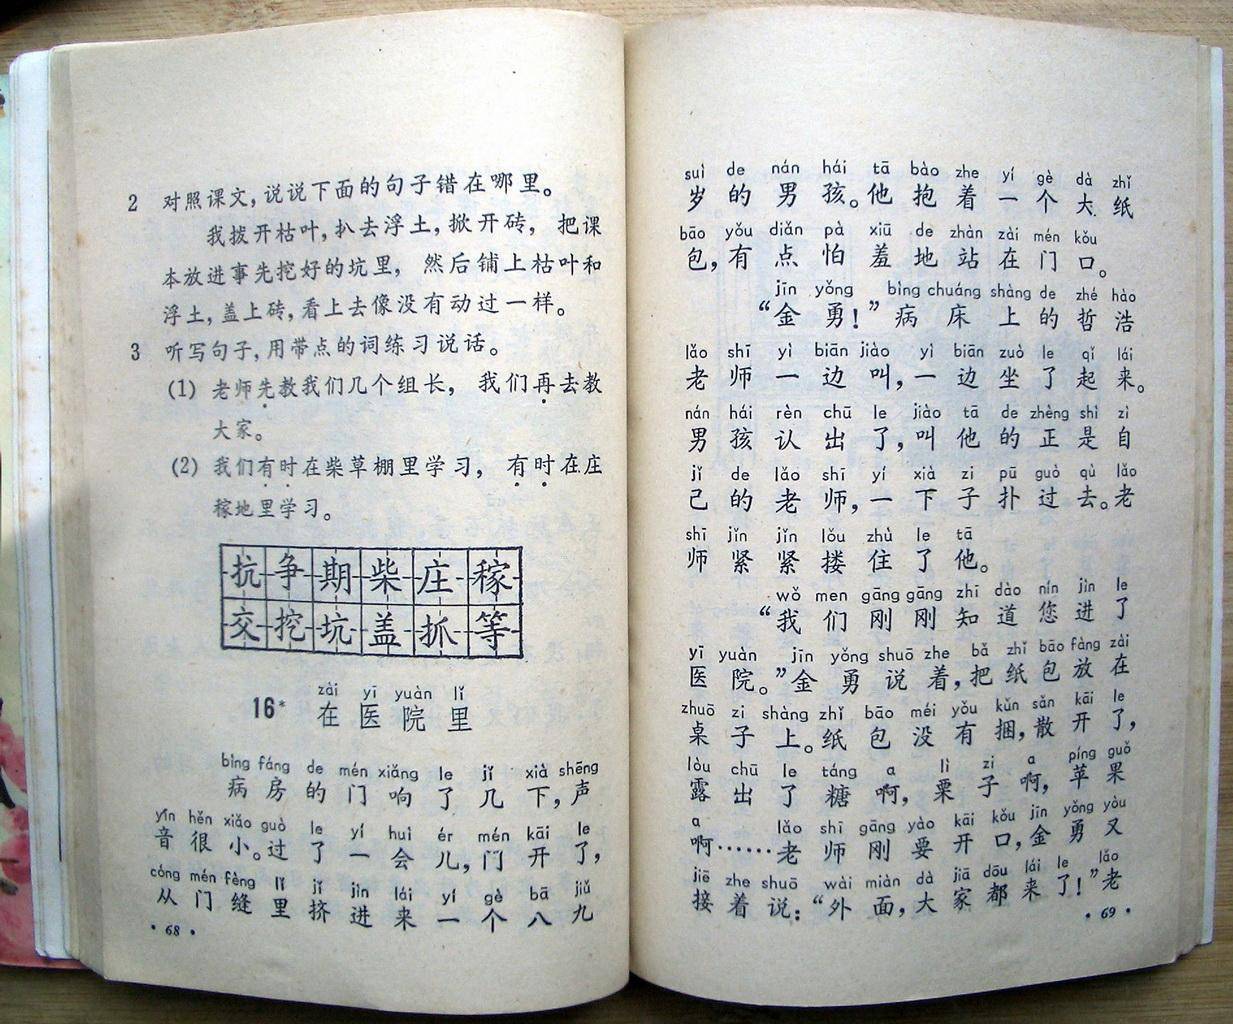 2 对照课文,说说下面的句子错在哪里。
我拨开枯叶,扒去浮土,掀开砖, 把课
本放进事先挖好的坑里, 然后铺上枯叶和
浮土,盖上砖,看上去像没有动过一样。
3 听写句子,用带点的词练习说话。
(1) 老师先教我们几个组长, 我们再去教
大家。
(2) 我们有时在柴草棚里学习, 有时在庄
稼地里学习。
抗争期柴庄稼
交挖坑盖抓等
zài yī yuàn lǐ
16* 在医院里
bìng fáng de mén xiǎng le jǐ xià shēng
病房的门响了几下,声
yīn hěn xiǎo guò le yí huì ér mén kāi le
音很小。过了一会儿,门开了,
cóng mén fèng lǐ jǐ jìn lái yí gè bā jiǔ
从门缝里挤进来一个八九
• 68 •
suì de nán hái tā bào zhe yí gè dà zhǐ
岁的男孩。他抱着一个大纸
bāo yǒu diǎn pà xiū de zhàn zài mén kǒu
包,有点怕羞地站在门口。
jīn yǒng bìng chuáng shàng de zhé hào
“金勇!”病床上的哲浩
lǎo shī yì biān jiào yì biān zuò le qǐ lái
老师一边叫,一边坐了起来。
nán hái rèn chū le jiào tā de zhèng shì zì
男孩认出了,叫他的正是自
jǐ de lǎo shī yí xià zi pū guò qù lǎo
己的老师,一下子扑过去。老
shī jǐn jǐn lǒu zhù le tā
师紧紧搂住了他。
wǒ men gāng gāng zhī dào nín jìn le
“我们刚刚知道您进了
yī yuàn jīn yǒng shuō zhe bǎ zhǐ bāo fàng zài
医院。”金勇说着,把纸包放在
zhuō zi shàng zhǐ bāo méi yǒu kǔn sǎn kāi le
桌子上。纸包没有捆,散开了,
lòu chū le táng a lì zi a píng guǒ
露出了糖啊,栗子啊,苹果
a lǎo shī gāng yào kāi kǒu jīn yǒng yòu
啊……老师刚要开口,金勇又
jiē zhe shuō wài miàn dà jiā dōu lái le lǎo
接着说:“外面,大家都来了!”老
• 69 •